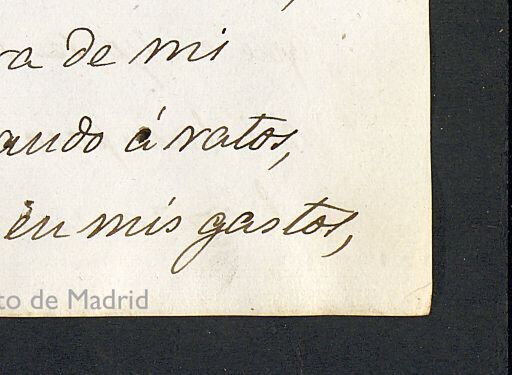 ra de mi
ando á ratos,
en mis gastos,
to de Madrid